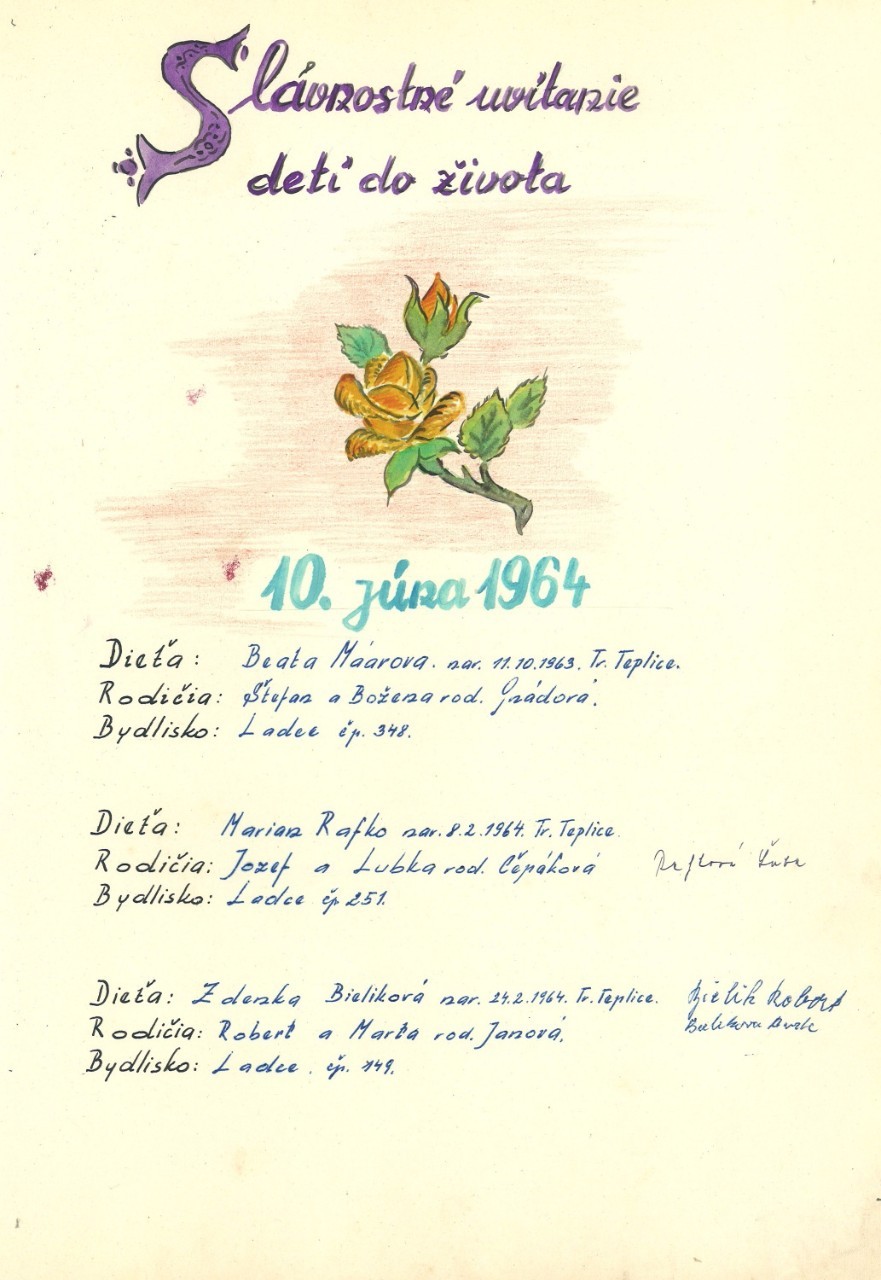 Slávnostné uvítanie
detí do života
10. júna 1964
Dieťa: Beata Máarova. nar. 11.10.1963. Tr. Teplice.
Rodičia: Štefan a Božena rod. Grádorá.
Bydlisko: Ladce čp. 348.
Dieťa: Marian Rafko nar. 8.2.1964. Tr. Teplice.
Rodičia: Jozef a Lubka rod. Čěpáková
Bydlisko: Ladce čp 251.
Dieťa: Zdenka Bieliková nar. 24.2.1964. Tr. Teplice. Bielik Robert
Rodičia: Robert a Marta rod. Janová.
Bydlisko: Ladce. čp. 149.